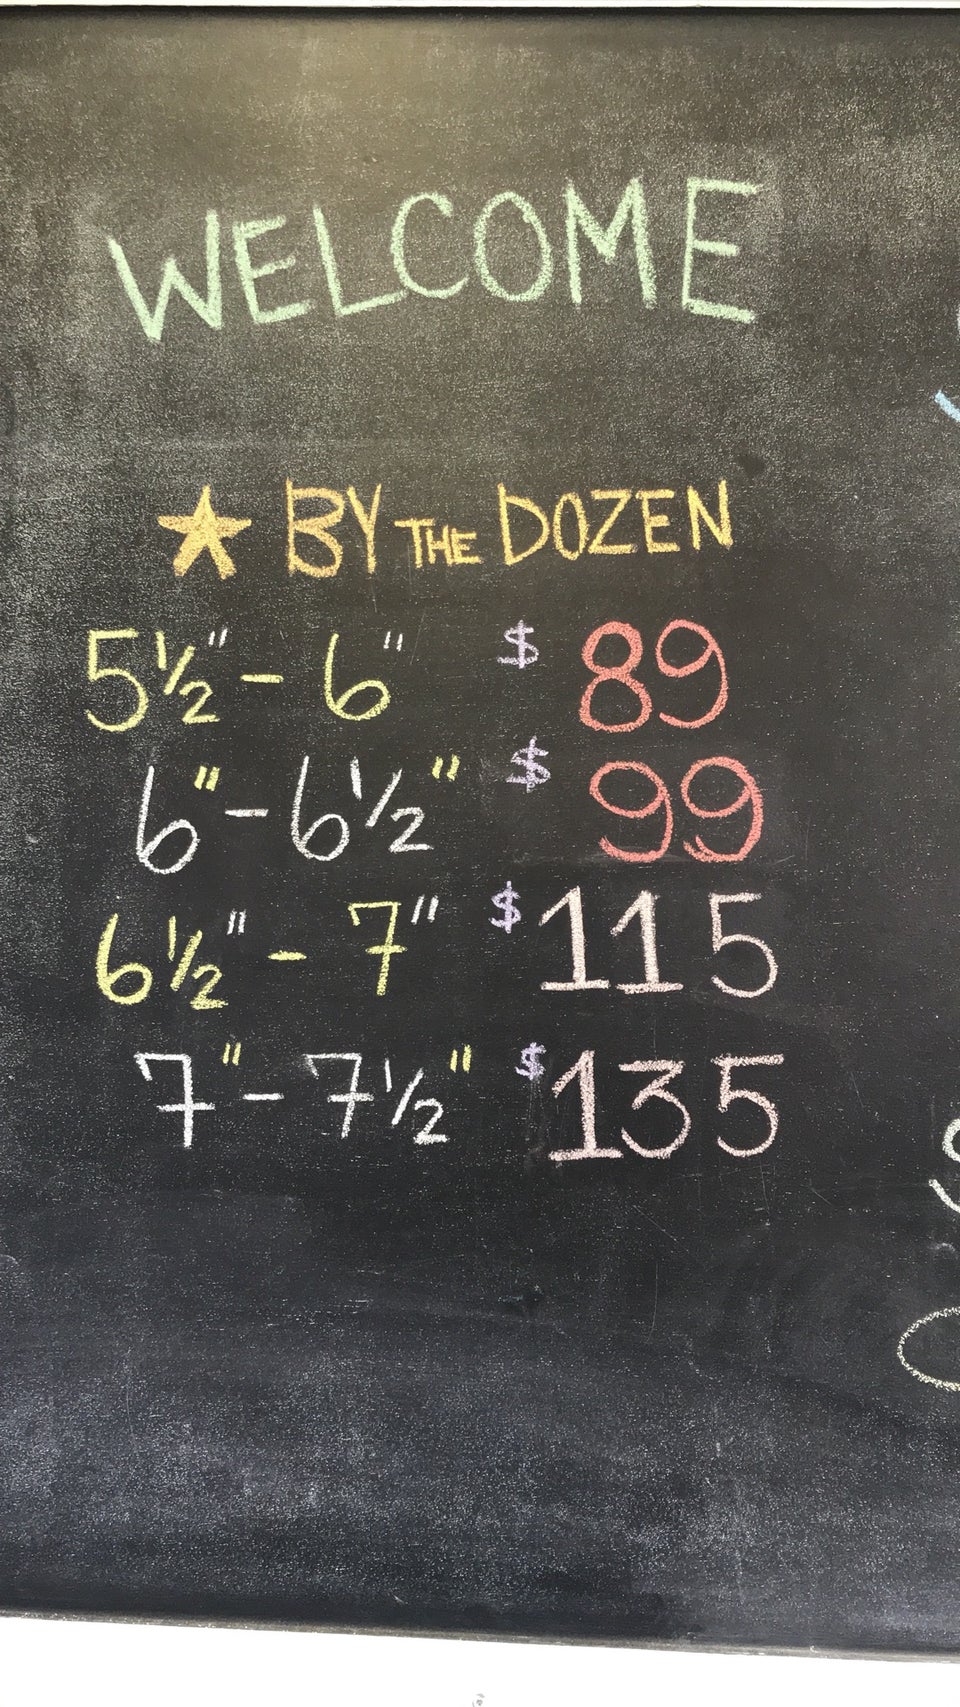 WELCOME
★ BY THE DOZEN
5½" - 6" $ 89
6" - 6½" $ 99
6½" - 7" $ 115
7" - 7½" $ 135